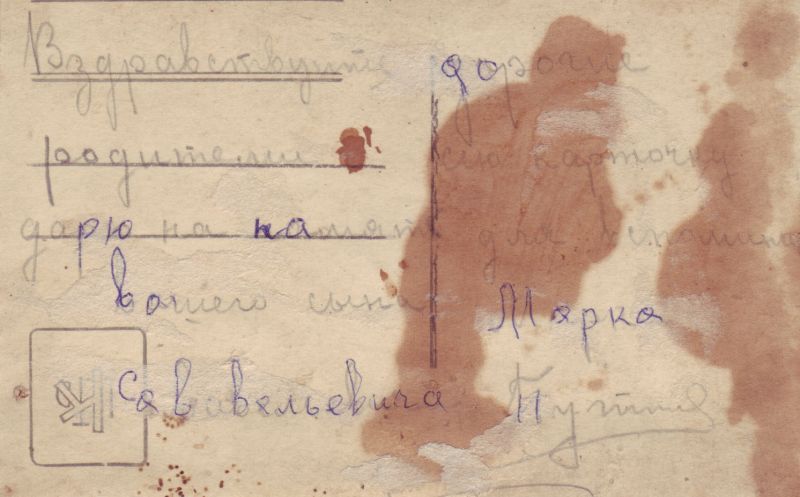 Вздравствуите дорогие
родители сию карточку
дарю на память для вспомина
вашего сына Марка
Саввельевича